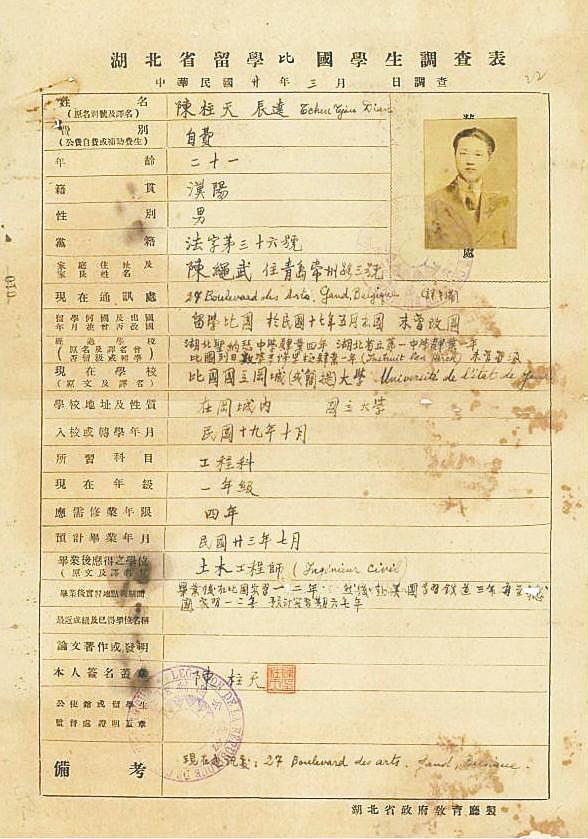 湖北省留學比國學生調查表
中華民國廿年三月 日調查
22
姓名 陳柱天 辰達 Tchen Tjou Dian
(原名別號及譯名)
費別 自費
(公費自費或補助費生)
年齡 二十一
籍貫 漢陽
性別 男
黨籍 法字第三十六號
家庭住址及家長姓名 陳繩武 住青島常州路三號
現在通訊處 27 Boulevard des Arts, Gand, Belgique
留學何國及出國年月曾否改國 留學比國 於民國十七年五月出國 未曾改國
經過學校 湖北聖 中學肄業四年 湖北省立第一中學肄業一年
(原名及譯名曾否留級或轉學) 比國 肄業一年
現在學校 比國國立岡城 大學 Université de l'état de
(原文及譯名)
學校地址及性質 在岡城內 國立大學
入校或轉學年月 民國十九年十月
所習科目 工程科
現在年級 一年級
應需修業年限 四年
預計畢業年月 民國廿三年七月
畢業後應得之學位 土木工程師 (Ingénieur Civil)
(原文及譯名)
畢業後實習地點與期間 畢業後在比國實習一二年 然後赴美國學習鐵道三年
國實習一二年 預計實習期六七年
最近成績及已得學位名稱
論文著作或發明
本人簽名蓋章 陳柱天
公使館或留學生
監督處證明蓋章
備考 現在通訊處: 27 Boulevard des arts, Gand, Belgique.
湖北省政府教育廳製